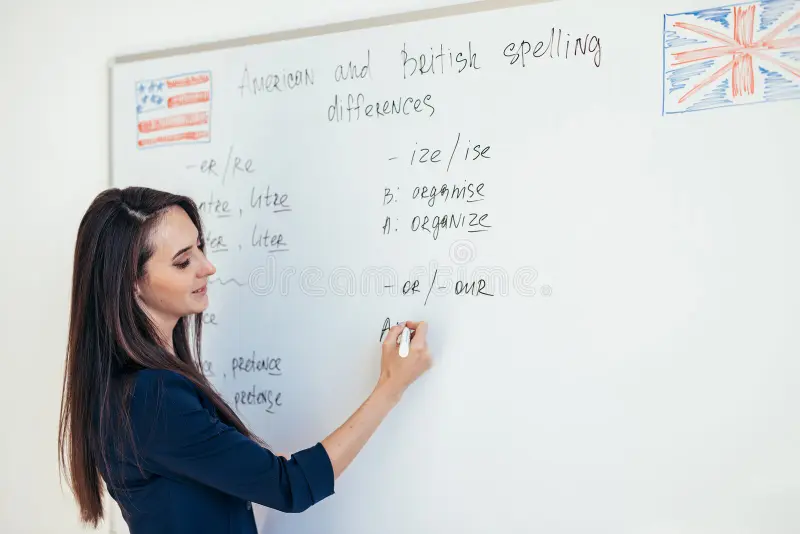 American and British spelling
differences
-er/re
litre
liter
, pretence
, pretense
-ize/ise
B: organise
A: organize
-or/-our
A
dreamstime